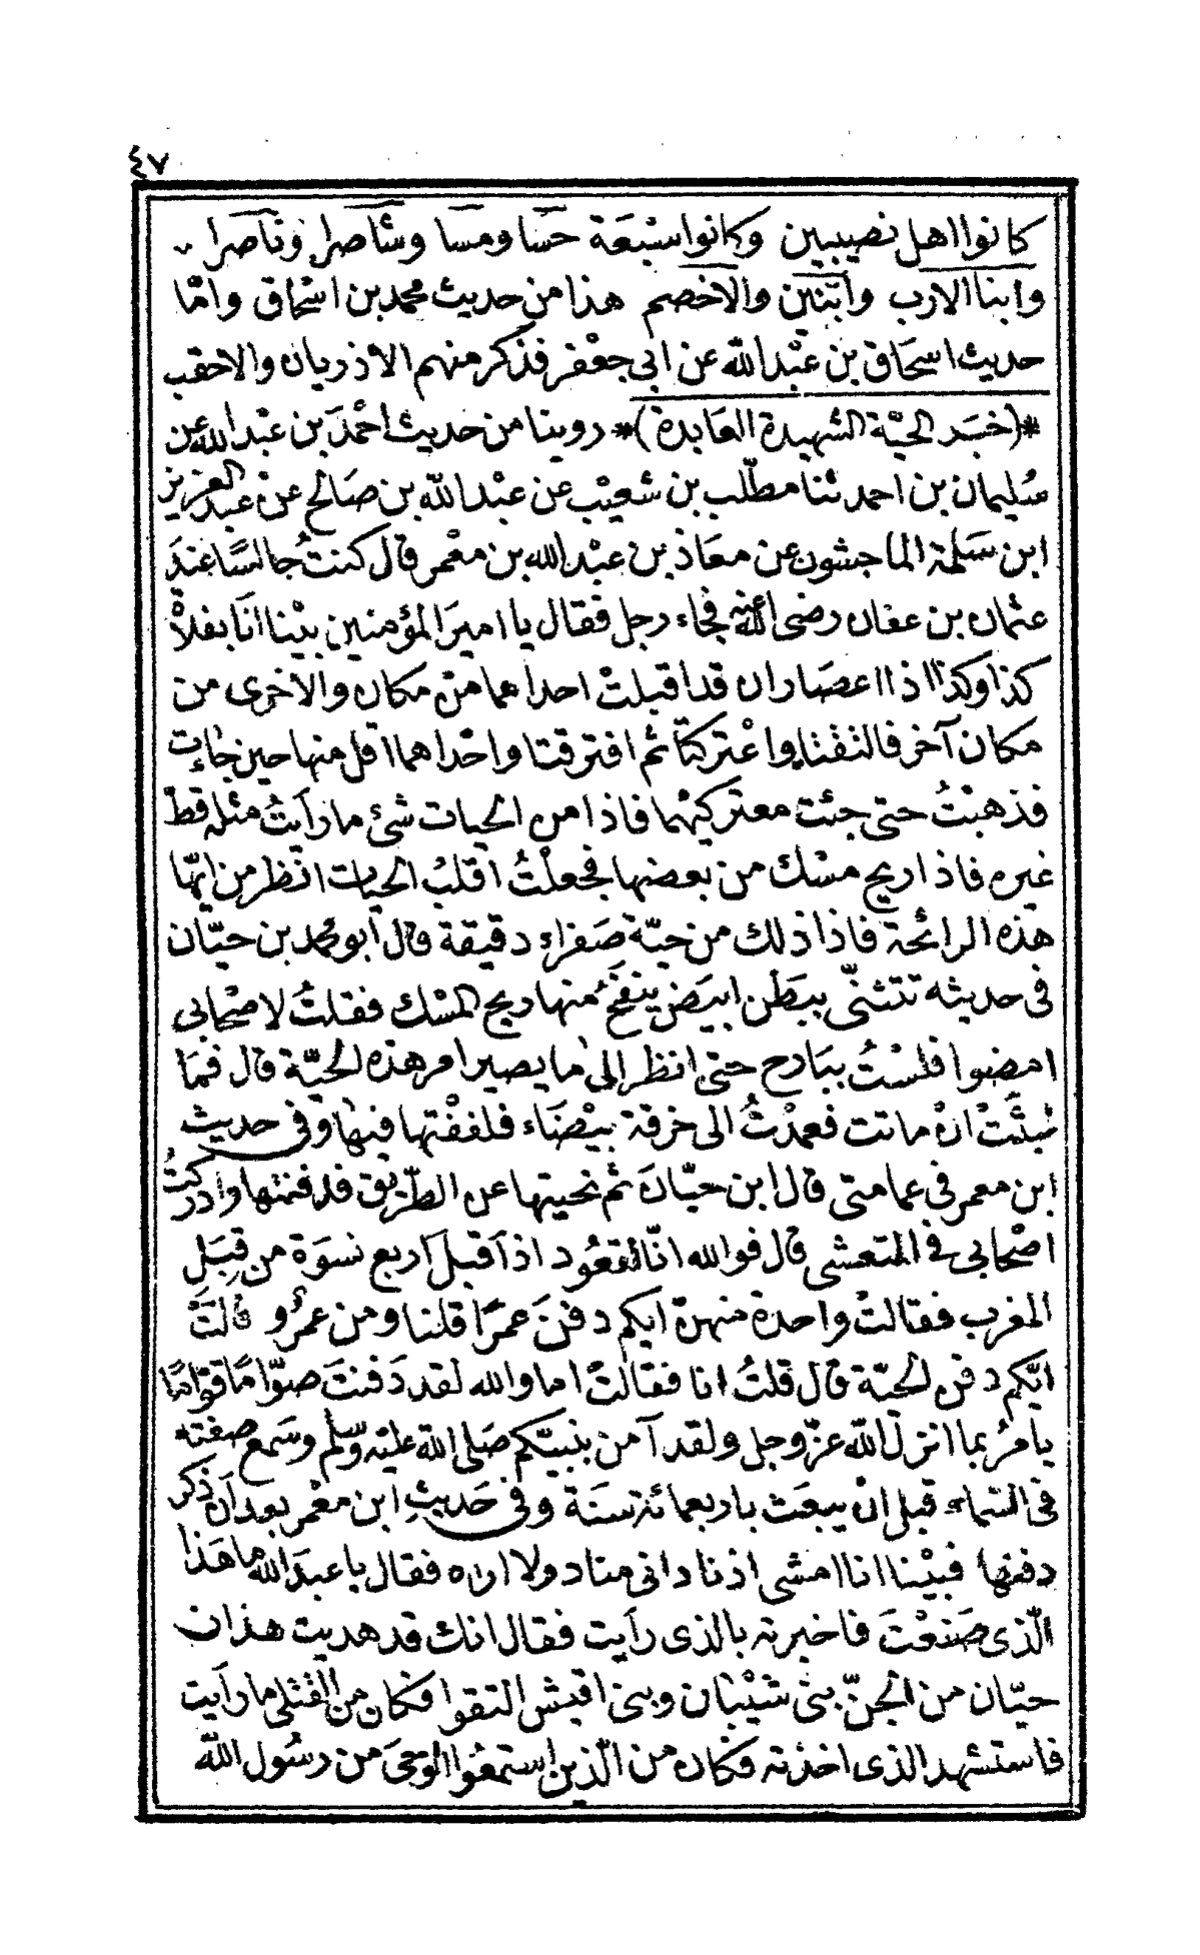 ٤٧
كانوا اهل نصيبين وكانوا سبعة حسا ومسا وشاصرا وناصرا
وابنا الارب وابنين والاخصم هذا من حديث محمد بن اسحاق وامّا
حديث اسحاق بن عبد الله عن ابى جعفر فذكر منهم الاذريان والاحقب
*(خبر الحيّة الشهيدة العابدة)* روينا من حديث احمد بن عبد الله عن
سُليمان بن احمد ثنا مطّلب بن شعيب عن عبد الله بن صالح عن عبد العزيز
ابن سلمة الماجشون عن معاذ بن عبد الله بن معمر قال كنتُ جالسًا عند
عثمان بن عفان رضى الله عنه فجاء رجل فقال يا امير المؤمنين بيْنا انا بفلاة
كذا وكذا اذا اعصاران قد اقبلتْ احداهما من مكان والاخرى من
مكان آخر فالتقتا واعْتركتا ثم افترقتا واحْداهما اقل منها حين جاءت
فذهبْتُ حتى جئت معتركهما فاذا من الحيات شئ ما رأيتُ مثله قطّ
غيره فاذا ريح مسْك من بعضها فجعلْتُ اقلبُ الحيات انظر من ايّها
هذه الرائحة فاذا ذلك من حيّة صفراء دقيقة قال ابو محمد بن حيّان
فى حديثه تتثنّى ببطن ابيض ينفخ منها ريح المسْك فقلتُ لاصْحابى
امضوا فلسْتُ ببارح حتى انظر الى ما يصير امر هذه الحيّة قال فما
لبثَتْ ان ماتت فعمدْتُ الى خرقة بيْضاء فلففْتها فيها وفى حديث
ابن معمر فى عمامتى قال ابن حيّان ثم نحيتها عن الطريق فدفنتها وادركتُ
اصْحابى فى المتعشى قال فوالله انّا لقعُود اذ اقبل اربع نسوة من قِبَلِ
المغرب فقالتْ واحدة منهنّ ايكم دفن عمرًا قلنا ومن عمْرو قالتْ
ايّكم دفن الحيّة قال قلتُ انا فقالتْ اما والله لقد دَفنتَ صوّامًا قوّامًا
يامرُ بما انزل الله عزّ وجل ولقد آمن بنبيّكم صلى الله عليه وسلم وسمع صفته
فى السّماء قبل ان يبعث باربعمائة سنة وفى حديثِ ابن معْمر بعد ان ذكر
دفنها فبيْنا انا امشى اذ نادانى مناد ولا اراه فقال يا عبد الله ما هذا
الّذى صنعْتَ فاخبرته بالذى رأيت فقال انك قد هديت هذان
حيّان من الجنّ بنى شيْبان وبنى اقيش التقوا فكان من القتلى ما رأيت
فاستشهد الذى اخذته وكان من الّذين استمعوا الوحى من رسُول الله